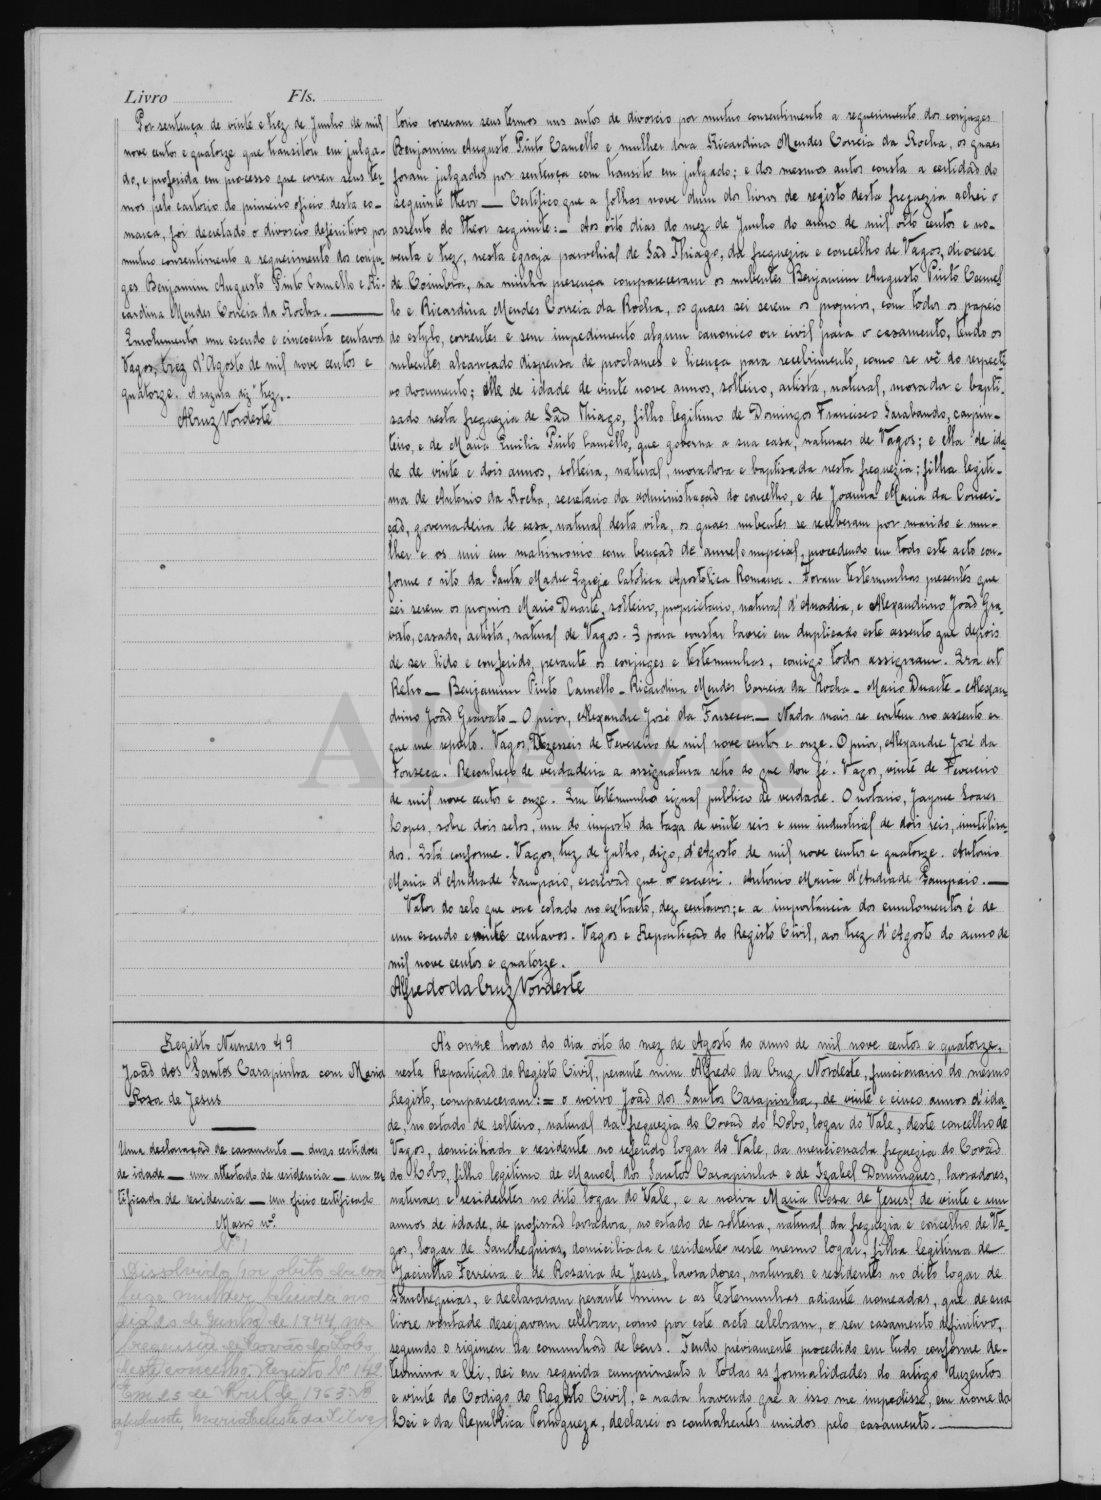 Livro Fls.
Por sentença de vinte e trez de Junho de mil
nove centos e quatorze que transitou em julga-
do, e proferida em processo que correu seus ter-
mos pelo cartorio do primeiro oficio desta co-
marca, foi decretado o divorcio definitivo por
mutuo consentimento a requerimento dos conju-
ges Benjamim Augusto Pinto Camello e Ri-
cardina Mendes Correia da Rocha.
Emolumentos um escudo e cincoenta centavos
Vagos, trez d'Agosto de mil nove centos e
quatorze. A razura diz "trez".
ACruz Nordeste
torio correram seus termos uns autos de divorcio por mutuo consentimento a requerimento dos conjuges
Benjamim Augusto Pinto Camello e mulher dona Ricardina Mendes Correia da Rocha, os quaes
foram julgados por sentença com transito em julgado; e dos mesmos autos consta a certidão do
seguinte theor — Certifico que a folhas nove dum dos livros de registo desta freguezia achei o
assento do theor seguinte: — Aos oito dias do mez de Junho do anno de mil oito centos e no-
venta e trez, nesta egreja parochial de São Thiago, da freguezia e concelho de Vagos, diocese
de Coimbra, na minha presença compareceram os nubentes Benjamim Augusto Pinto Camel-
lo e Ricardina Mendes Correia da Rocha, os quaes sei serem os proprios, com todos os papeis
do estylo, correntes e sem impedimento algum canonico ou civil para o casamento, tendo os
nubentes alcançado dispensa de proclames e licença para recebimento, como se vê do respecti-
vo documento; elle de idade de vinte nove annos, solteiro, artista, natural, morador e bapti-
sado nesta freguezia de São Thiago, filho legitimo de Domingos Francisco Sarabando, carpin-
teiro, e de Maria Emilia Pinto Camello, que governa a sua casa, naturaes de Vagos; e ella de ida-
de de vinte e dois annos, solteira, natural, moradora e baptisada nesta freguezia; filha legiti-
ma de Antonio da Rocha, secretario da administração do concelho, e de Joanna Maria da Concei-
ção, governadeira de casa, natural desta vila, os quaes nubentes se receberam por marido e mu-
lher e os uni em matrimonio com benção de annel nupcial, procedendo em todo este acto con-
forme o rito da Santa Madre Egreja Catolica Apostolica Romana. Foram testemunhas presentes que
sei serem os proprios Mario Duarte, solteiro, proprietario, natural d'Anadia, e Alexandrino João Gra-
vato, casado, artista, natural de Vagos. E para constar lavrei em duplicado este assento que depois
de ser lido e conferido, perante os conjuges e testemunhas, comigo todos assignam. Era ut
Retro — Benjamim Pinto Camello — Ricardina Mendes Correia da Rocha — Mario Duarte — Alexan-
drino João Gravato — O prior, Alexandre José da Fonseca. — Nada mais se contem no assento a
que me reporto. Vagos, Dezesseis de Fevereiro de mil nove centos e onze. O prior, Alexandre José da
Fonseca. Reconheço de verdadeira a assignatura retro do que dou fé. Vagos, vinte de Fevereiro
de mil nove centos e onze. Em testemunho signal publico de verdade. O notario, Jayme Soares
Lopes, sobre dois selos, um do imposto da taxa de vinte reis e um industrial de dois reis, inutilisa-
dos. Está conforme. Vagos, trez de Julho, digo, d'Agosto de mil nove centos e quatorze. Antonio
Maria d'Andrade Sampaio, escrivão que o escrevi. Antonio Maria d'Andrade Sampaio.
Valor do selo que vae colado no extracto, dez centavos; e a importancia dos emolumentos é de
um escudo e vinte centavos. Vagos e Repartição do Registo Civil, aos trez d'Agosto do anno de
mil nove centos e quatorze.
Alfredo da Cruz Nordeste
Registo Numero 49
João dos Santos Carapinha com Maria
Rosa de Jesus
Uma declaração de casamento — duas certidões
de idade — um attestado de residencia — um cer-
tificado de residencia — um oficio certificado
Maço nº.
Nº 1
Dissolvido por obito da con-
juge mulher, falecida no
dia de Junho de 1944, na
freguesia de Covão do Lobo
deste concelho. Registo Nº 142
Em 25 de Abril de 1963. O
ajudante Maria Celeste da Silva
Ás onze horas do dia oito do mez de Agosto do anno de mil nove centos e quatorze,
nesta Repartição do Registo Civil, perante mim Alfredo da Cruz Nordeste, funcionario do mesmo
Registo, compareceram: = o noivo João dos Santos Carapinha, de vinte e cinco annos d'ida-
de, no estado de solteiro, natural da freguezia do Covão do Lobo, logar do Vale, deste concelho de
Vagos, domiciliado e residente no referido logar do Vale, da mencionada freguezia do Covão
do Lobo, filho legitimo de Manoel dos Santos Carapinha e de Izabel Domingues, lavradores,
naturaes e residentes no dito logar do Vale, e a noiva Maria Rosa de Jesus, de vinte e um
annos de idade, de profissão lavradora, no estado de solteira, natural da freguezia e concelho de Va-
gos, logar de Sanchequias, domiciliada e residente neste mesmo logar, filha legitima de
Jacintho Ferreira e de Rosaria de Jesus, lavradores, naturaes e residentes no dito logar de
Sanchequias, e declararam perante mim e as testemunhas adiante nomeadas, que de sua
livre vontade desejavam celebrar, como por este acto celebram, o seu casamento definitivo,
segundo o regimen da comunhão de bens. Tendo préviamente procedido em tudo conforme de-
termina a Lei, dei em seguida cumprimento a todas as formalidades do artigo duzentos
e vinte do Codigo do Registo Civil, e nada havendo que a isso me impedisse, em nome da
Lei e da Republica Portugueza, declarei os contrahentes unidos pelo casamento.